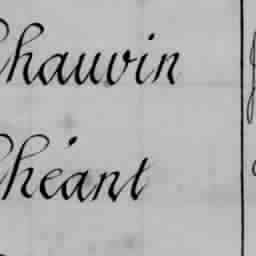 Chauvin
Chéant